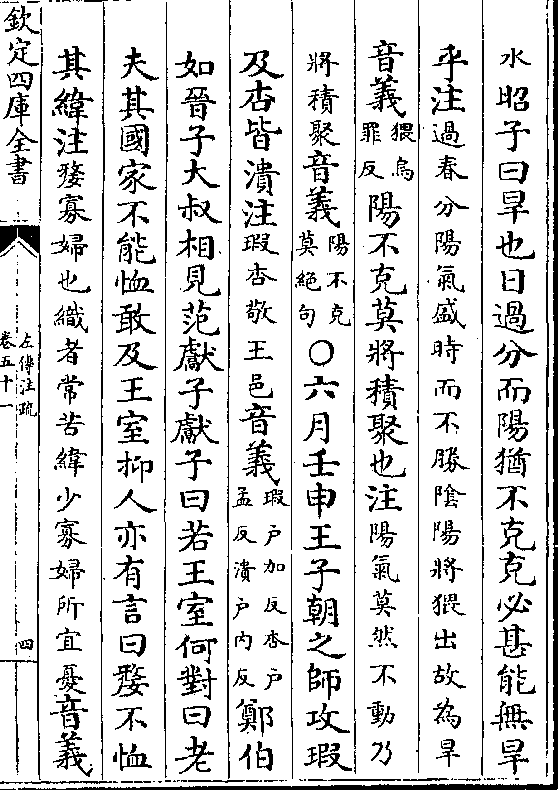 水昭子曰旱也日過分而陽猶不克克必甚能無旱
乎注過春分陽氣盛時而不勝陰陽將猥出故為旱
音義猥烏罪反陽不克莫將積聚也注陽氣莫然不動乃
將積聚音義陽不克莫絕句○六月壬申王子朝之師攻瑕
及杏皆潰注瑕杏敬王邑音義瑕户加反杏户孟反潰户内反鄭伯
如晉子大叔相見范獻子獻子曰若王室何對曰老
夫其國家不能恤敢及王室抑人亦有言曰嫠不恤
其緯注嫠寡婦也織者常苦緯少寡婦所宜憂音義
欽定四庫全書
左傳注疏
卷五十一
四